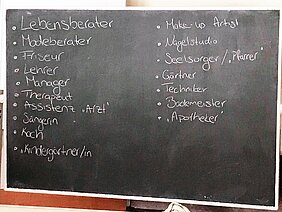 Lebensberater
Modeberater
Friseur
Lehrer
Manager
Therapeut
Assistenz "Arzt"
Sängerin
Koch
Kindergärtner/in
Make-up Artist
Nagelstudio
Seelsorger/"Pfarrer"
Gärtner
Techniker
Bademeister
"Apotheker"